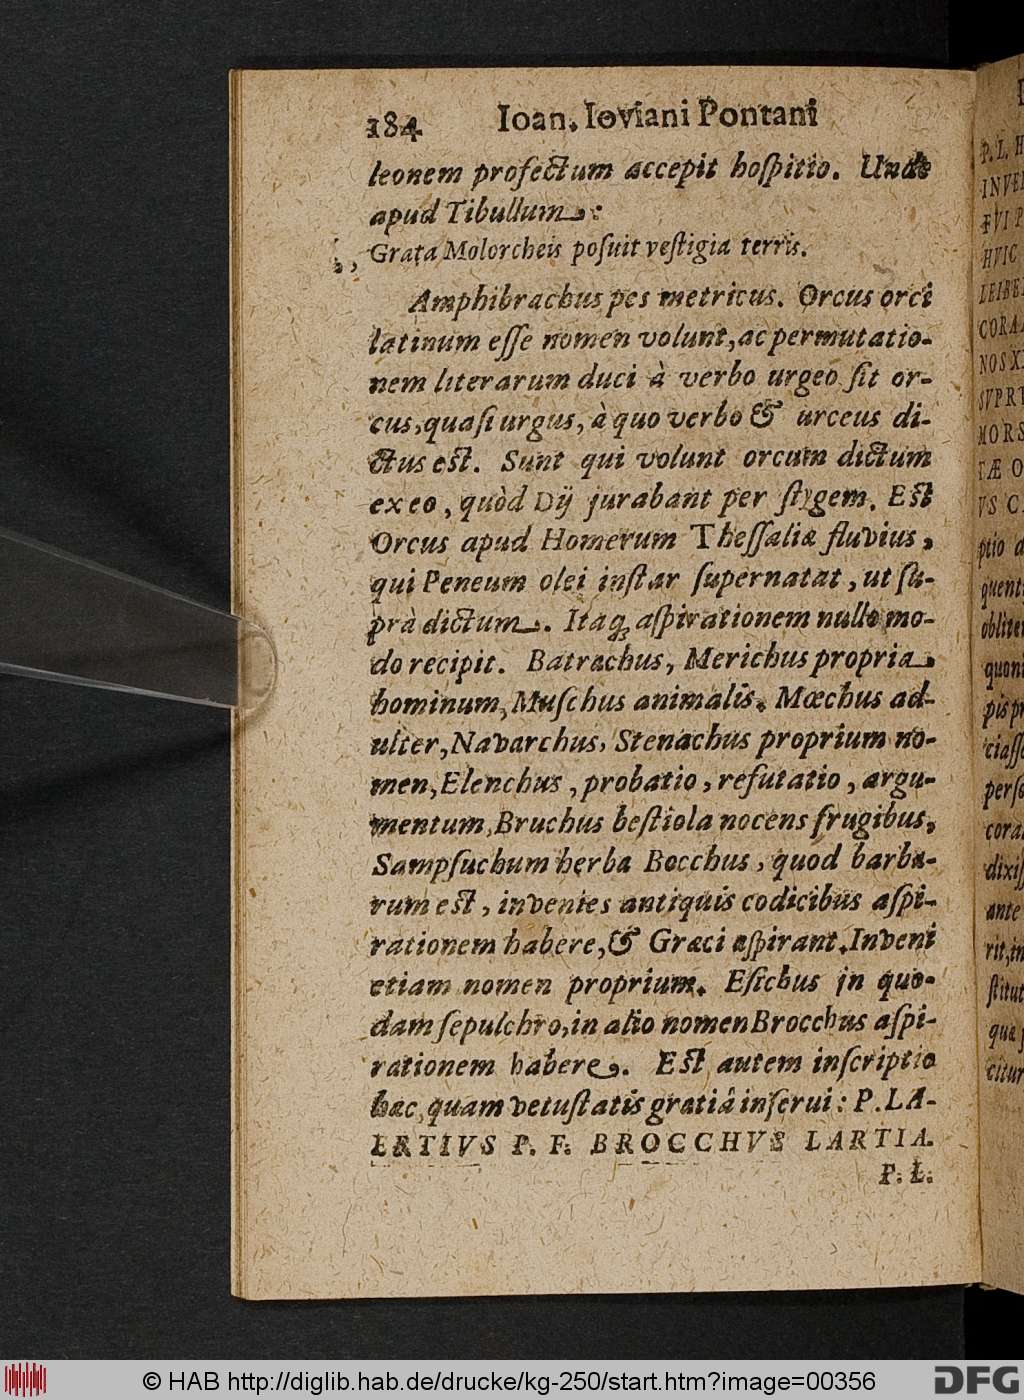 184 Ioan. Ioviani Pontani
leonem profectum accepit hoſpitio. Unde
apud Tibullum:
Grata Molorcheis poſuit veſtigia terris.
Amphibrachus pes metricus. Orcus orci
latinum eſſe nomen volunt, ac permutatio-
nem literarum duci à verbo urgeo ſit or-
cus, quaſi urgus, à quo verbo & urceus di-
ctus eſt. Sunt qui volunt orcum dictum
ex eo, quòd Dij jurabant per ſtygem. Eſt
Orcus apud Homerum Theſſaliæ fluvius,
qui Peneum olei inſtar ſupernatat, ut ſu-
prà dictum. Itaq; aſpirationem nullo mo-
do recipit. Batrachus, Merichus propria
hominum, Muſchus animalis. Mœchus ad-
ulter, Navarchus, Stenachus proprium no-
men, Elenchus, probatio, refutatio, argu-
mentum, Bruchus beſtiola nocens frugibus,
Sampſuchum herba Bocchus, quod barba-
rum eſt, invenies antiquis codicibus aſpi-
rationem habere, & Græci aſpirant. Inveni
etiam nomen proprium. Eſichus in quo-
dam ſepulchro, in alio nomen Brocchus aſpi-
rationem habere. Eſt autem inſcriptio
hæc, quam vetuſtatis gratiâ inſerui: P. LA-
ERTIVS P. F. BROCCHVS LARTIA.
P. L.
P. L. H
INVE
HVIC
CORA
NOS X
MORS
ptio
quent
oblite
quoni
ciaſſ
perſo
cora
dixiſ
ante
rit, in
ſtitut
quæ
citur
© HAB http://diglib.hab.de/drucke/kg-250/start.htm?image=00356
DFG